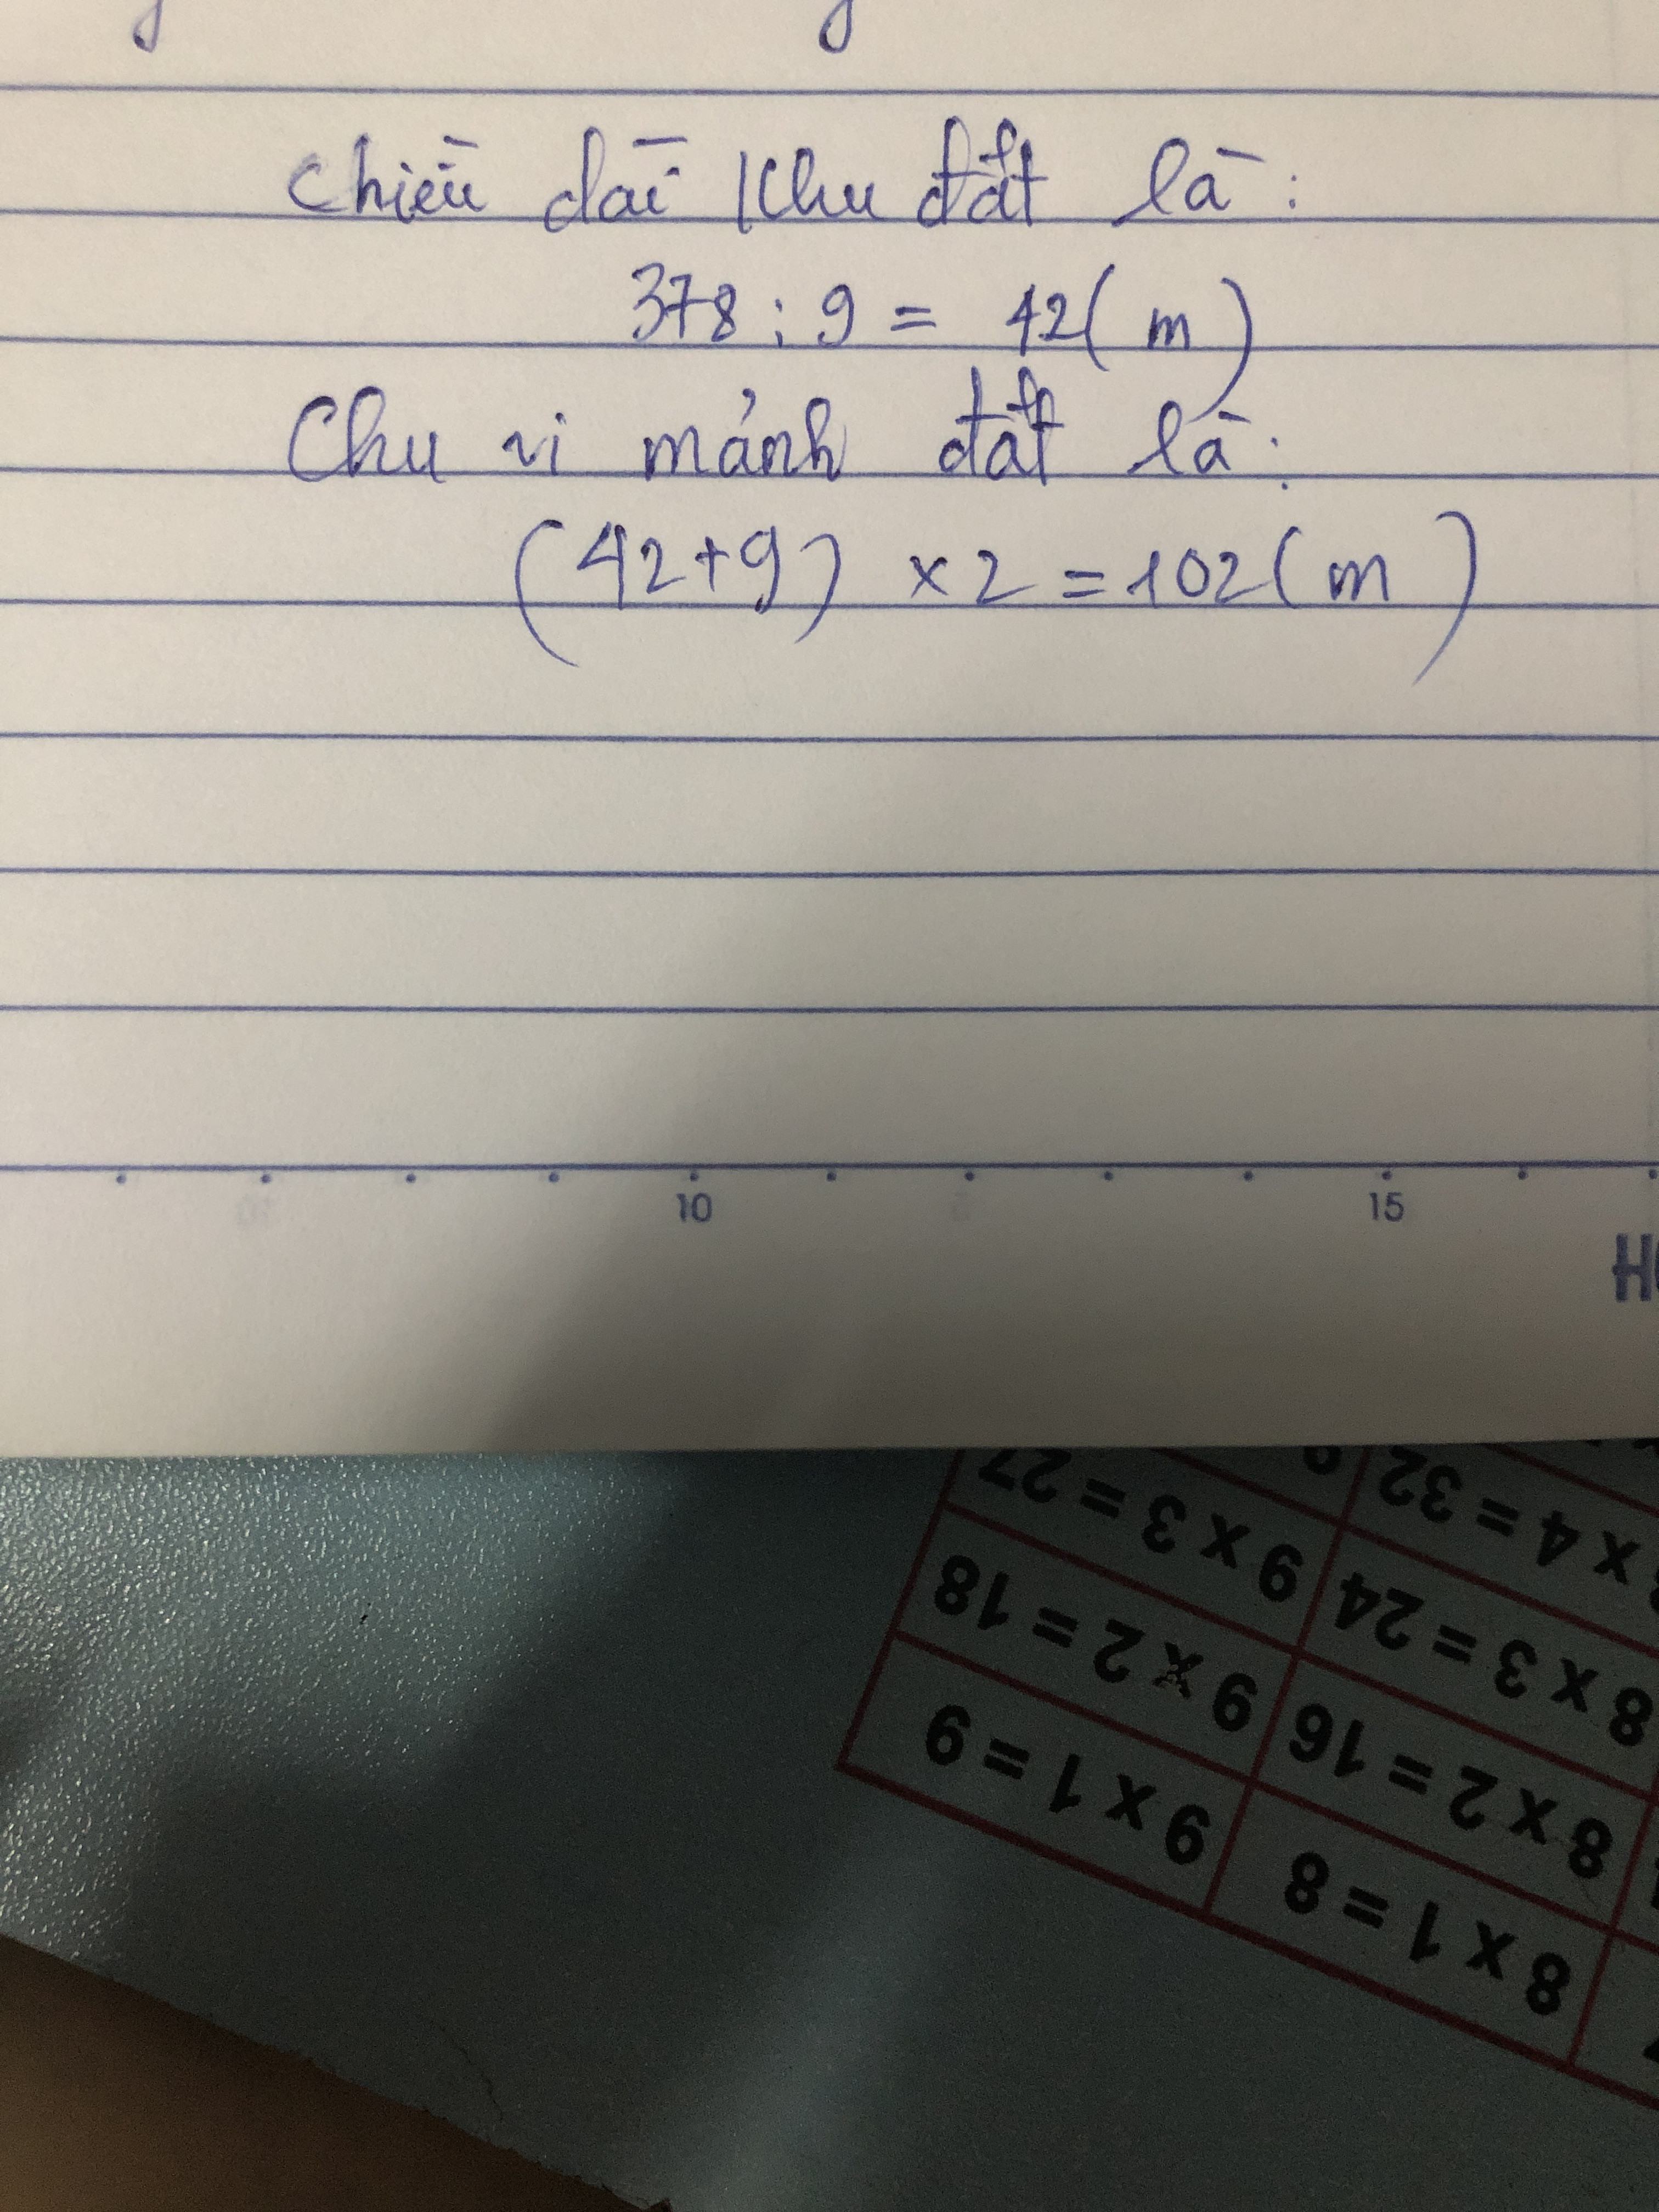 Chiều dài khu đất là:
378 : 9 = 42 ( m )
Chu vi mảnh đất là:
(42+9) x 2 = 102 ( m )
10 15
9 x 3 = 27
x 4 = 32
9 x 2 = 18
8 x 3 = 24
9 x 1 = 9
8 x 2 = 16
8 x 1 = 8